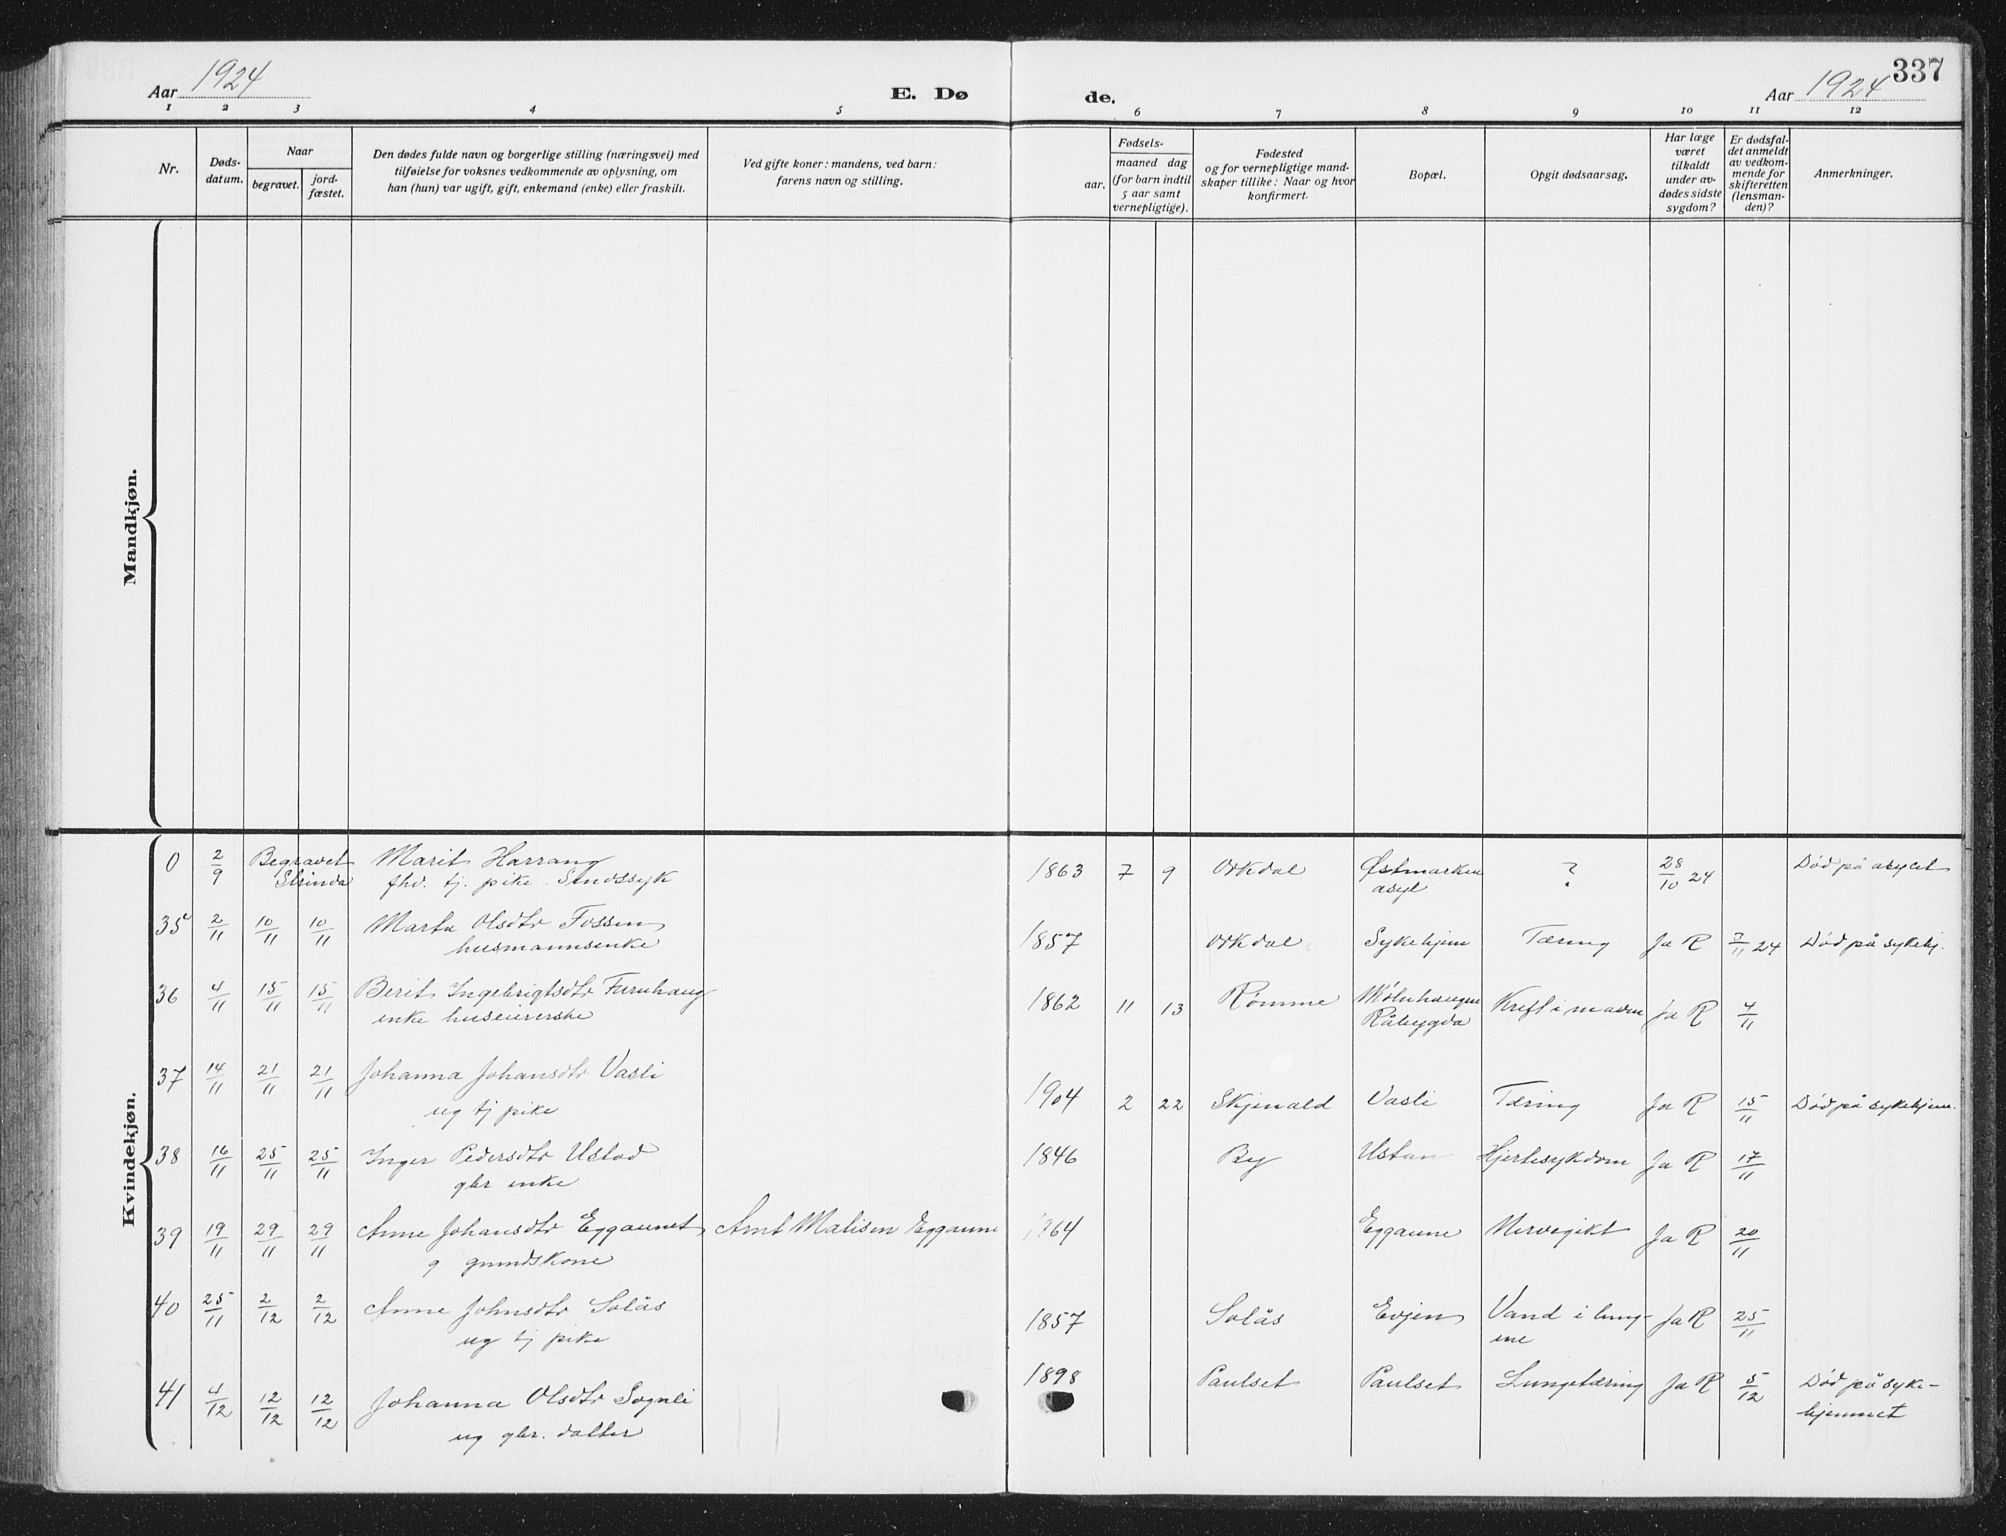 337
Aar 1924
E. Dø
de.
Aar 1924
1 2 3 4 5 6 7 8 9 10 11 12
Nr.
Døds-
datum.
Naar
begravet.
jord-
fæstet.
Den dødes fulde navn og borgerlige stilling (næringsvei) med
tilføielse for voksnes vedkommende av oplysning, om
han (hun) var ugift, gift, enkemand (enke) eller fraskilt.
Ved gifte koner: mandens, ved barn:
farens navn og stilling.
Fødsels-
aar.
maaned dag
(for barn indtil
5 aar samt
vernepligtige).
Fødested
og for vernepligtige mand-
skaper tillike: Naar og hvor
konfirmert.
Bopæl.
Opgit dødsaarsag.
Har læge
været
tilkaldt
under av-
dødes sidste
sygdom?
Er dødsfal-
det anmeldt
av vedkom-
mende for
skifteretten
(lensman-
den)?
Anmerkninger.
Mandkjøn.
Kvindekjøn.
0 2/9 Begravet Marit Harrang 1863 7 9 Orkdal Østmarken ? 28/10 24 Død på asylet
Strinda fhv. tj. pike. Sindssyk asyl
35 2/11 10/11 10/11 Marta Olsdtr Fossen 1857 Orkdal Sykehjem Tæring Ja R 7/11 24 Død på sykehj.
husmannsenke
36 4/11 15/11 15/11 Berit Ingebrigtsdtr Furuhaug 1862 11 13 Rømme Kreft i maven Ja R 7/11
enke Råbygda
37 14/11 21/11 21/11 Johanna Johansdtr Vasli 1904 2 22 Skjenald Vasli Tæring Ja R 15/11 Død på sykehjem.
ug tj pike
38 16/11 25/11 25/11 Inger Pedersdtr Ustad 1846 By Ustan Hjertesykdom Ja R 17/11
gbr enke
39 19/11 29/11 29/11 Anne Johansdtr Eggaunet Arnt Malisen Eggaune 1864 Eggaune Nervegikt Ja R 20/11
g grundskone
40 25/11 2/12 2/12 Anne Johnsdtr Solås 1857 Solås Evjen Vand i lung- Ja R 25/11
ug tj pike ene
41 4/12 12/12 12/12 Johanna Olsdtr Sognli 1898 Paulset Paulset Lungetæring Ja R 5/12 Død på syke-
ug gbr. datter hjemmet